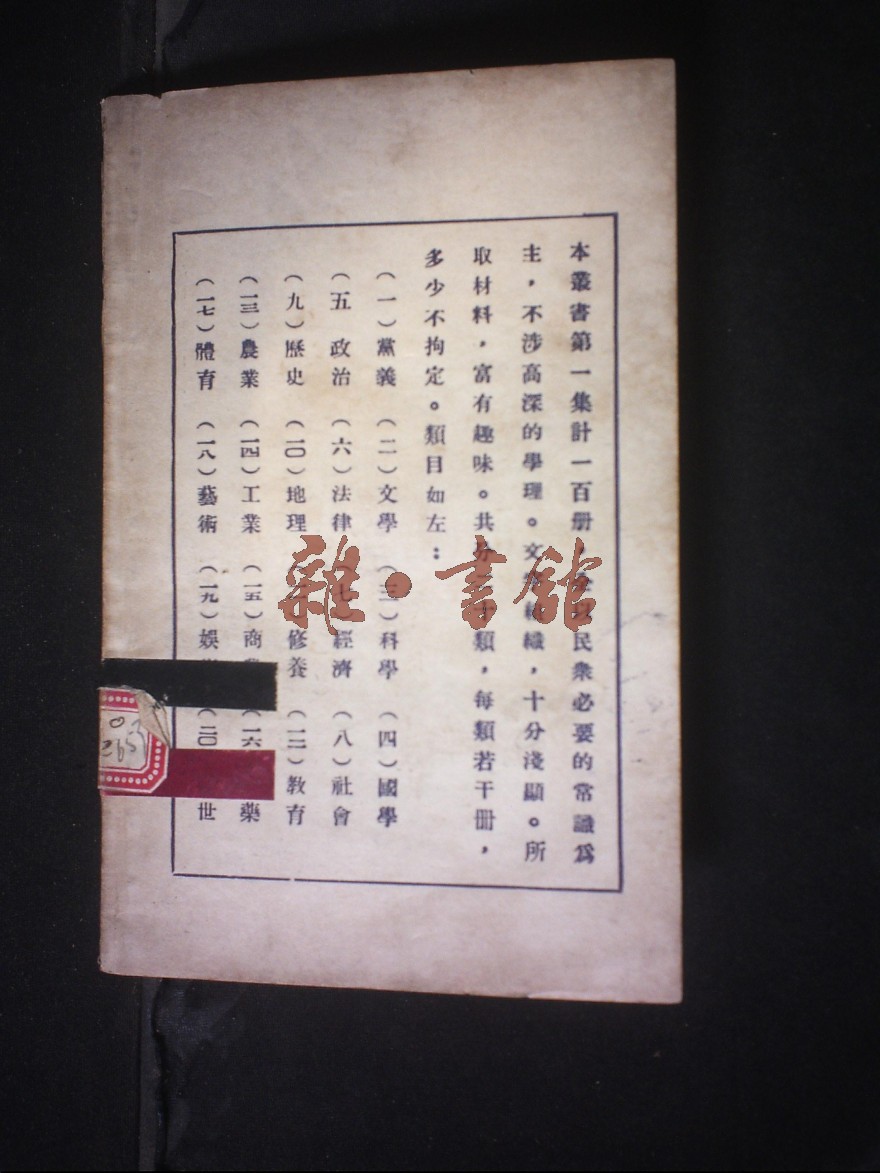 本叢書第一集計一百册，民衆必要的常識爲
主，不涉高深的學理。文織，十分淺顯。所
取材料，富有趣味。共類，每類若干册，
多少不拘定。類目如左：
（一）黨義（二）文學（三）科學（四）國學
（五 政治（六）法律（七）經濟（八）社會
（九）歷史（一〇）地理 修養（一二）教育
（一三）農業（一四）工業（一五）商（一六 藥
（一七）體育（一八）藝術（一九）娛（二〇 世
雜·書館